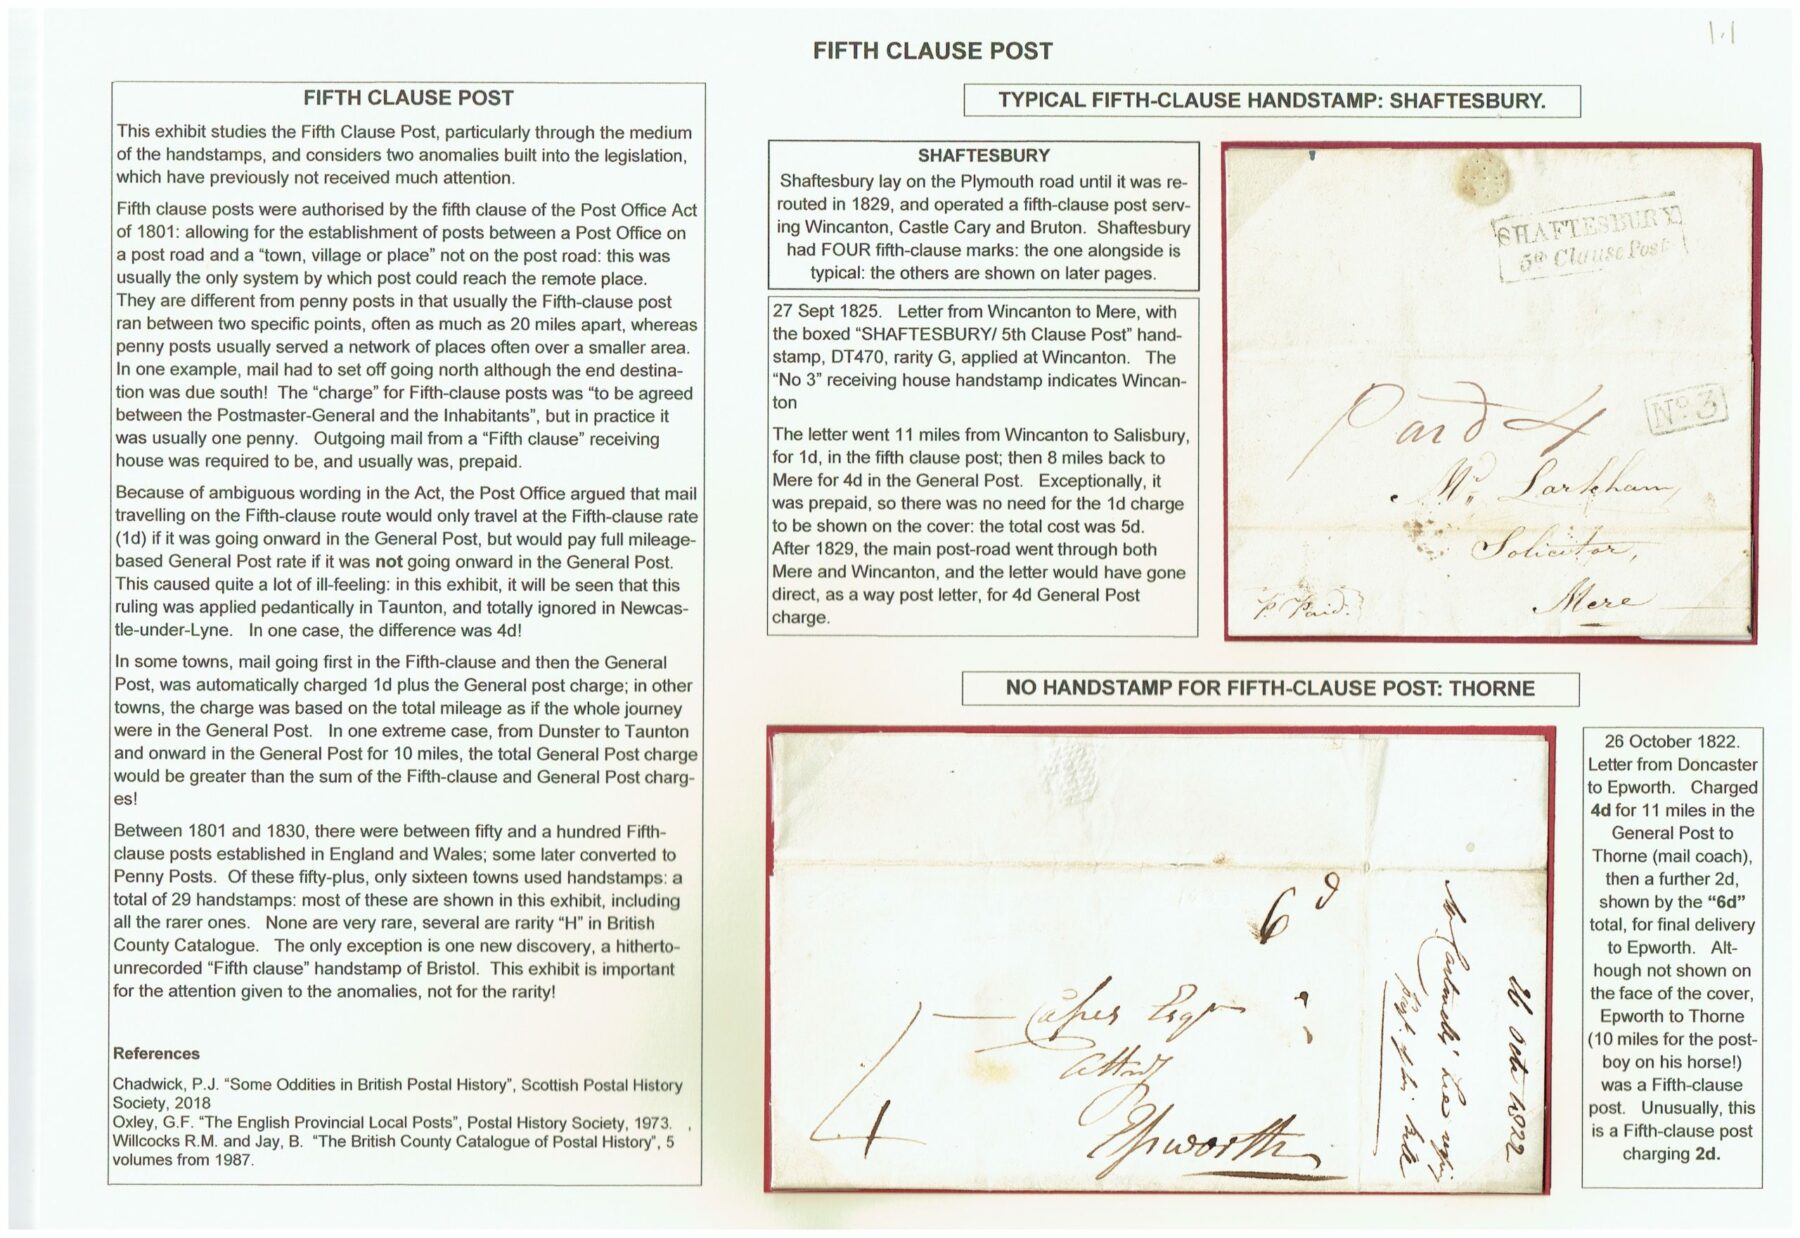 1.1
FIFTH CLAUSE POST
FIFTH CLAUSE POST
This exhibit studies the Fifth Clause Post, particularly through the medium
of the handstamps, and considers two anomalies built into the legislation,
which have previously not received much attention.
Fifth clause posts were authorised by the fifth clause of the Post Office Act
of 1801: allowing for the establishment of posts between a Post Office on
a post road and a “town, village or place” not on the post road: this was
usually the only system by which post could reach the remote place.
They are different from penny posts in that usually the Fifth-clause post
ran between two specific points, often as much as 20 miles apart, whereas
penny posts usually served a network of places often over a smaller area.
In one example, mail had to set off going north although the end destina-
tion was due south! The “charge” for Fifth-clause posts was “to be agreed
between the Postmaster-General and the Inhabitants”, but in practice it
was usually one penny. Outgoing mail from a “Fifth clause” receiving
house was required to be, and usually was, prepaid.
Because of ambiguous wording in the Act, the Post Office argued that mail
travelling on the Fifth-clause route would only travel at the Fifth-clause rate
(1d) if it was going onward in the General Post, but would pay full mileage-
based General Post rate if it was not going onward in the General Post.
This caused quite a lot of ill-feeling: in this exhibit, it will be seen that this
ruling was applied pedantically in Taunton, and totally ignored in Newcas-
tle-under-Lyne. In one case, the difference was 4d!
In some towns, mail going first in the Fifth-clause and then the General
Post, was automatically charged 1d plus the General post charge; in other
towns, the charge was based on the total mileage as if the whole journey
were in the General Post. In one extreme case, from Dunster to Taunton
and onward in the General Post for 10 miles, the total General Post charge
would be greater than the sum of the Fifth-clause and General Post charg-
es!
Between 1801 and 1830, there were between fifty and a hundred Fifth-
clause posts established in England and Wales; some later converted to
Penny Posts. Of these fifty-plus, only sixteen towns used handstamps: a
total of 29 handstamps: most of these are shown in this exhibit, including
all the rarer ones. None are very rare, several are rarity “H” in British
County Catalogue. The only exception is one new discovery, a hitherto-
unrecorded “Fifth clause” handstamp of Bristol. This exhibit is important
for the attention given to the anomalies, not for the rarity!
References
Chadwick, P.J. “Some Oddities in British Postal History”, Scottish Postal History
Society, 2018
Oxley, G.F. “The English Provincial Local Posts”, Postal History Society, 1973. ,
Willcocks R.M. and Jay, B. “The British County Catalogue of Postal History”, 5
volumes from 1987.
TYPICAL FIFTH-CLAUSE HANDSTAMP: SHAFTESBURY.
SHAFTESBURY
Shaftesbury lay on the Plymouth road until it was re-
routed in 1829, and operated a fifth-clause post serv-
ing Wincanton, Castle Cary and Bruton. Shaftesbury
had FOUR fifth-clause marks: the one alongside is
typical: the others are shown on later pages.
27 Sept 1825. Letter from Wincanton to Mere, with
the boxed “SHAFTESBURY/ 5th Clause Post” hand-
stamp, DT470, rarity G, applied at Wincanton. The
“No 3” receiving house handstamp indicates Wincan-
ton
The letter went 11 miles from Wincanton to Salisbury,
for 1d, in the fifth clause post; then 8 miles back to
Mere for 4d in the General Post. Exceptionally, it
was prepaid, so there was no need for the 1d charge
to be shown on the cover: the total cost was 5d.
After 1829, the main post-road went through both
Mere and Wincanton, and the letter would have gone
direct, as a way post letter, for 4d General Post
charge.
SHAFTESBURY
5th Clause Post
Paid 4
No 3
Mr Larkham
Solicitor,
Mere
P. Paid.
NO HANDSTAMP FOR FIFTH-CLAUSE POST: THORNE
6d
4
Capes Esqr
Epworth
26 Octr 1822
26 October 1822.
Letter from Doncaster
to Epworth. Charged
4d for 11 miles in the
General Post to
Thorne (mail coach),
then a further 2d,
shown by the “6d”
total, for final delivery
to Epworth. Alt-
hough not shown on
the face of the cover,
Epworth to Thorne
(10 miles for the post-
boy on his horse!)
was a Fifth-clause
post. Unusually, this
is a Fifth-clause post
charging 2d.